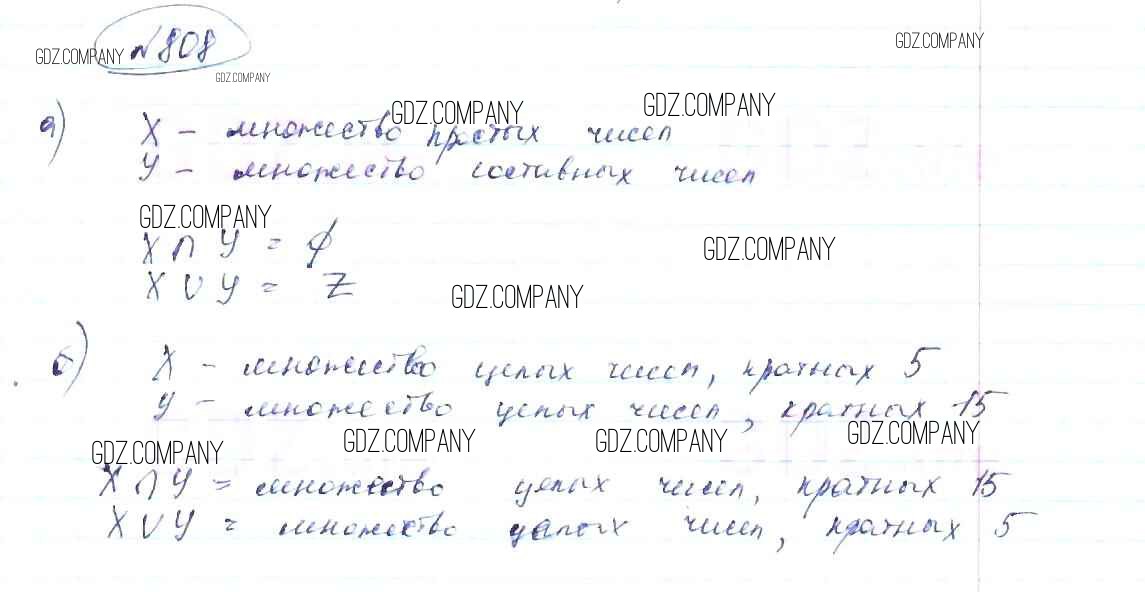 №808
GDZ.COMPANY
GDZ.COMPANY
GDZ.COMPANY
GDZ.COMPANY
GDZ.COMPANY
а) X – множество простых чисел
У – множество составных чисел
GDZ.COMPANY
X ∩ У = ∅
GDZ.COMPANY
X ∪ У = Z
GDZ.COMPANY
б) X – множество целых чисел, кратных 5
У – множество целых чисел, кратных 15
GDZ.COMPANY
GDZ.COMPANY
GDZ.COMPANY
GDZ.COMPANY
X ∩ У = множество целых чисел, кратных 15
X ∪ У = множество целых чисел, кратных 5